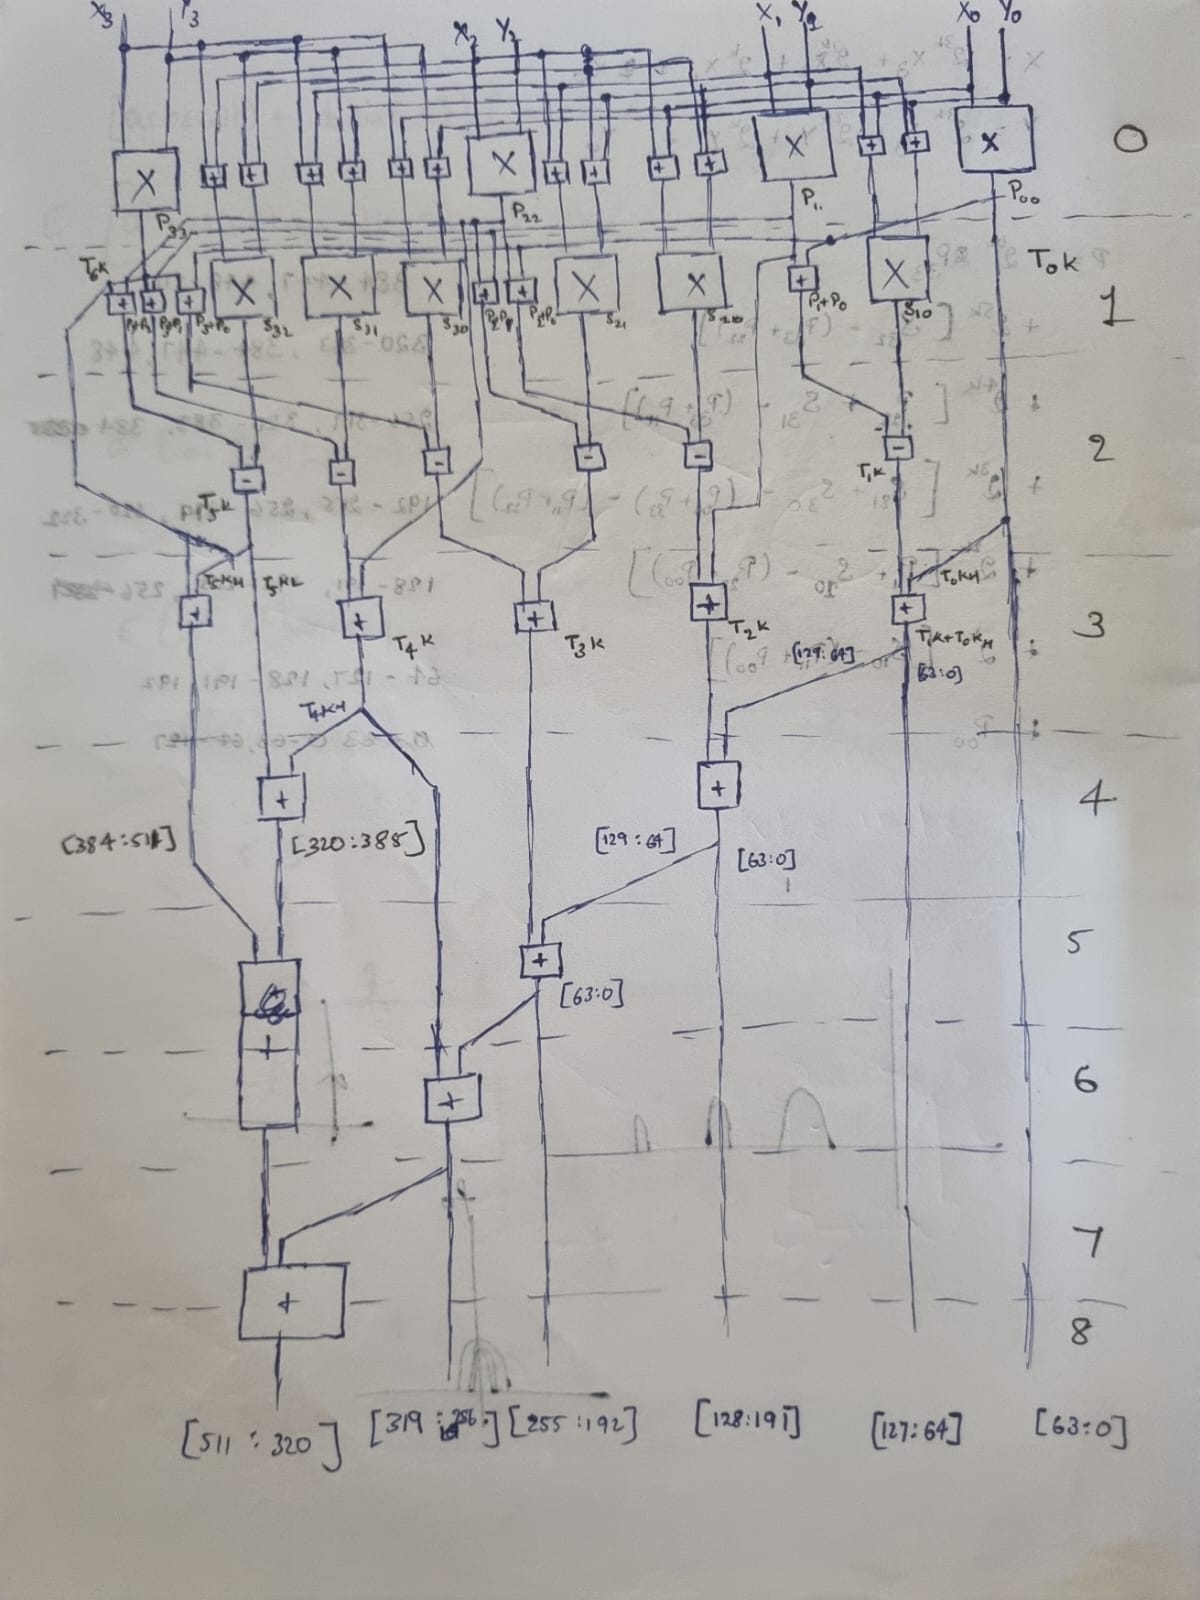 X3 Y3 X2 Y2 X1 Y1 X0 Y0
X + + + + + + X + + + + X + + X 0
P33 P22 P11 P00
T6K T0K
+ + + X X X + + X X + X 1
P3+P0 S32 S31 S30 P2P1 P2+P0 S21 S20 P1+P0 S10
- - - - - - 2
T5K T1K
T5KH T5KL T0KH
+ + + + + 3
T4K T3K T2K T1K+T0KH
[129:64] [63:0]
T4KH
+ + 4
[384:511] [320:385] [129:64] [63:0]
+ 5
[63:0]
+ + 6
7
+ 8
[511:320] [319:256] [255:192] [128:191] [127:64] [63:0]